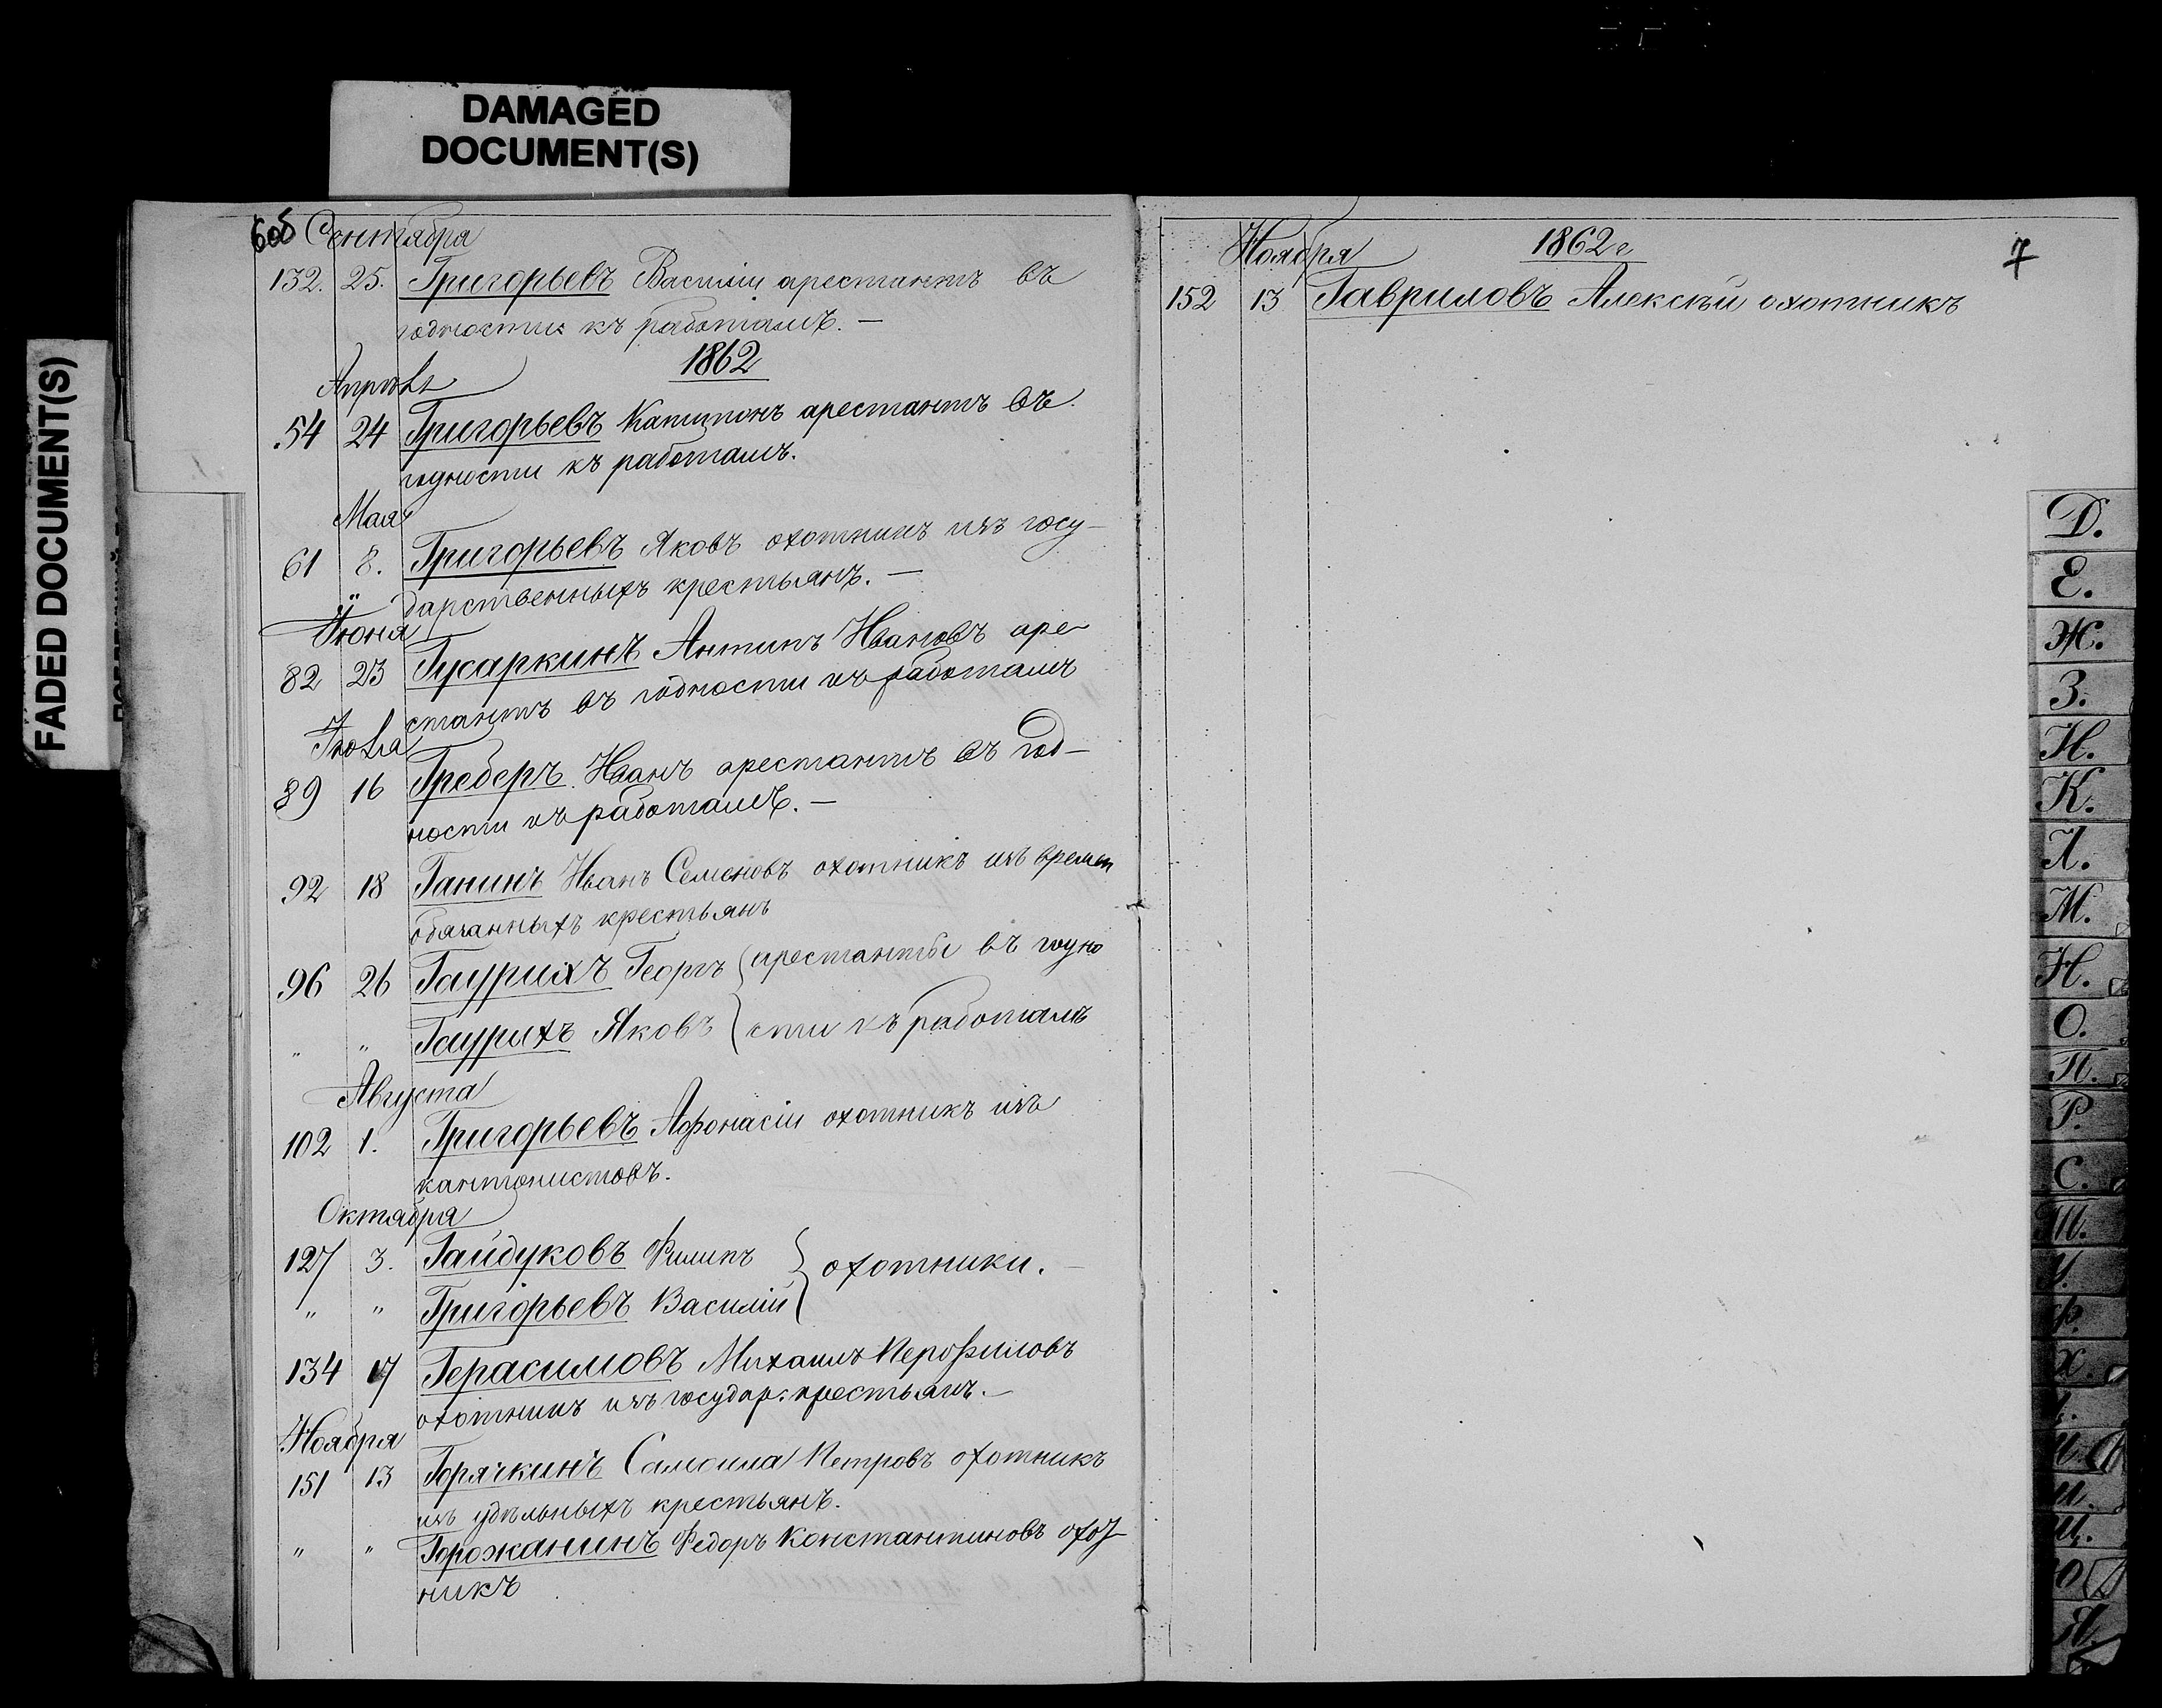 DAMAGED
DOCUMENT(S)
FADED DOCUMENT(S)
6об Сентября
132. 25. Григорьевъ Василiи арестантъ въ
годности къ работамъ. —
1862
Апрѣля
54 24 Григорьевъ Капитонъ арестантъ въ
годности къ работамъ.
Мая
61 8. Григорьевъ Яковъ охотникъ изъ госу-
дарственныхъ крестьянъ. —
Iюня
82 23 Гусаркинъ Антипъ Ивановъ аре
стантъ въ годности къ работамъ
Iюля
89 16 Греберъ Иванъ арестантъ въ год-
ности къ работамъ. —
92 18 Ганинъ Иванъ Семеновъ охотникъ изъ времен
обязанныхъ крестьянъ
96 26 Гаурихъ Георгъ арестанты въ годно
" " Гаурихъ Яковъ сти къ работамъ
Августа
102 1. Григорьевъ Афонасiи охотникъ изъ
кантонистовъ.
Октября
127 3. Гайдуковъ Филипъ охотники. —
" " Григорьевъ Василiй
134 17 Герасимовъ Михаилъ
охотникъ изъ государ. крестьянъ. —
Ноября
151 13 Горячкинъ Самоила Петровъ охотникъ
изъ удѣльныхъ крестьянъ.
" " Горожанинъ Федоръ Константиновъ охот
никъ
Ноября 1862 г 7
152 13 Гавриловъ Алексѣй охотникъ
Д.
Е.
Ж.
З.
И.
К.
Л.
М.
Н.
О.
П.
Р.
С.
Т.
У.
Ф.
Х.
Ш.
Щ.
Ю
Я.